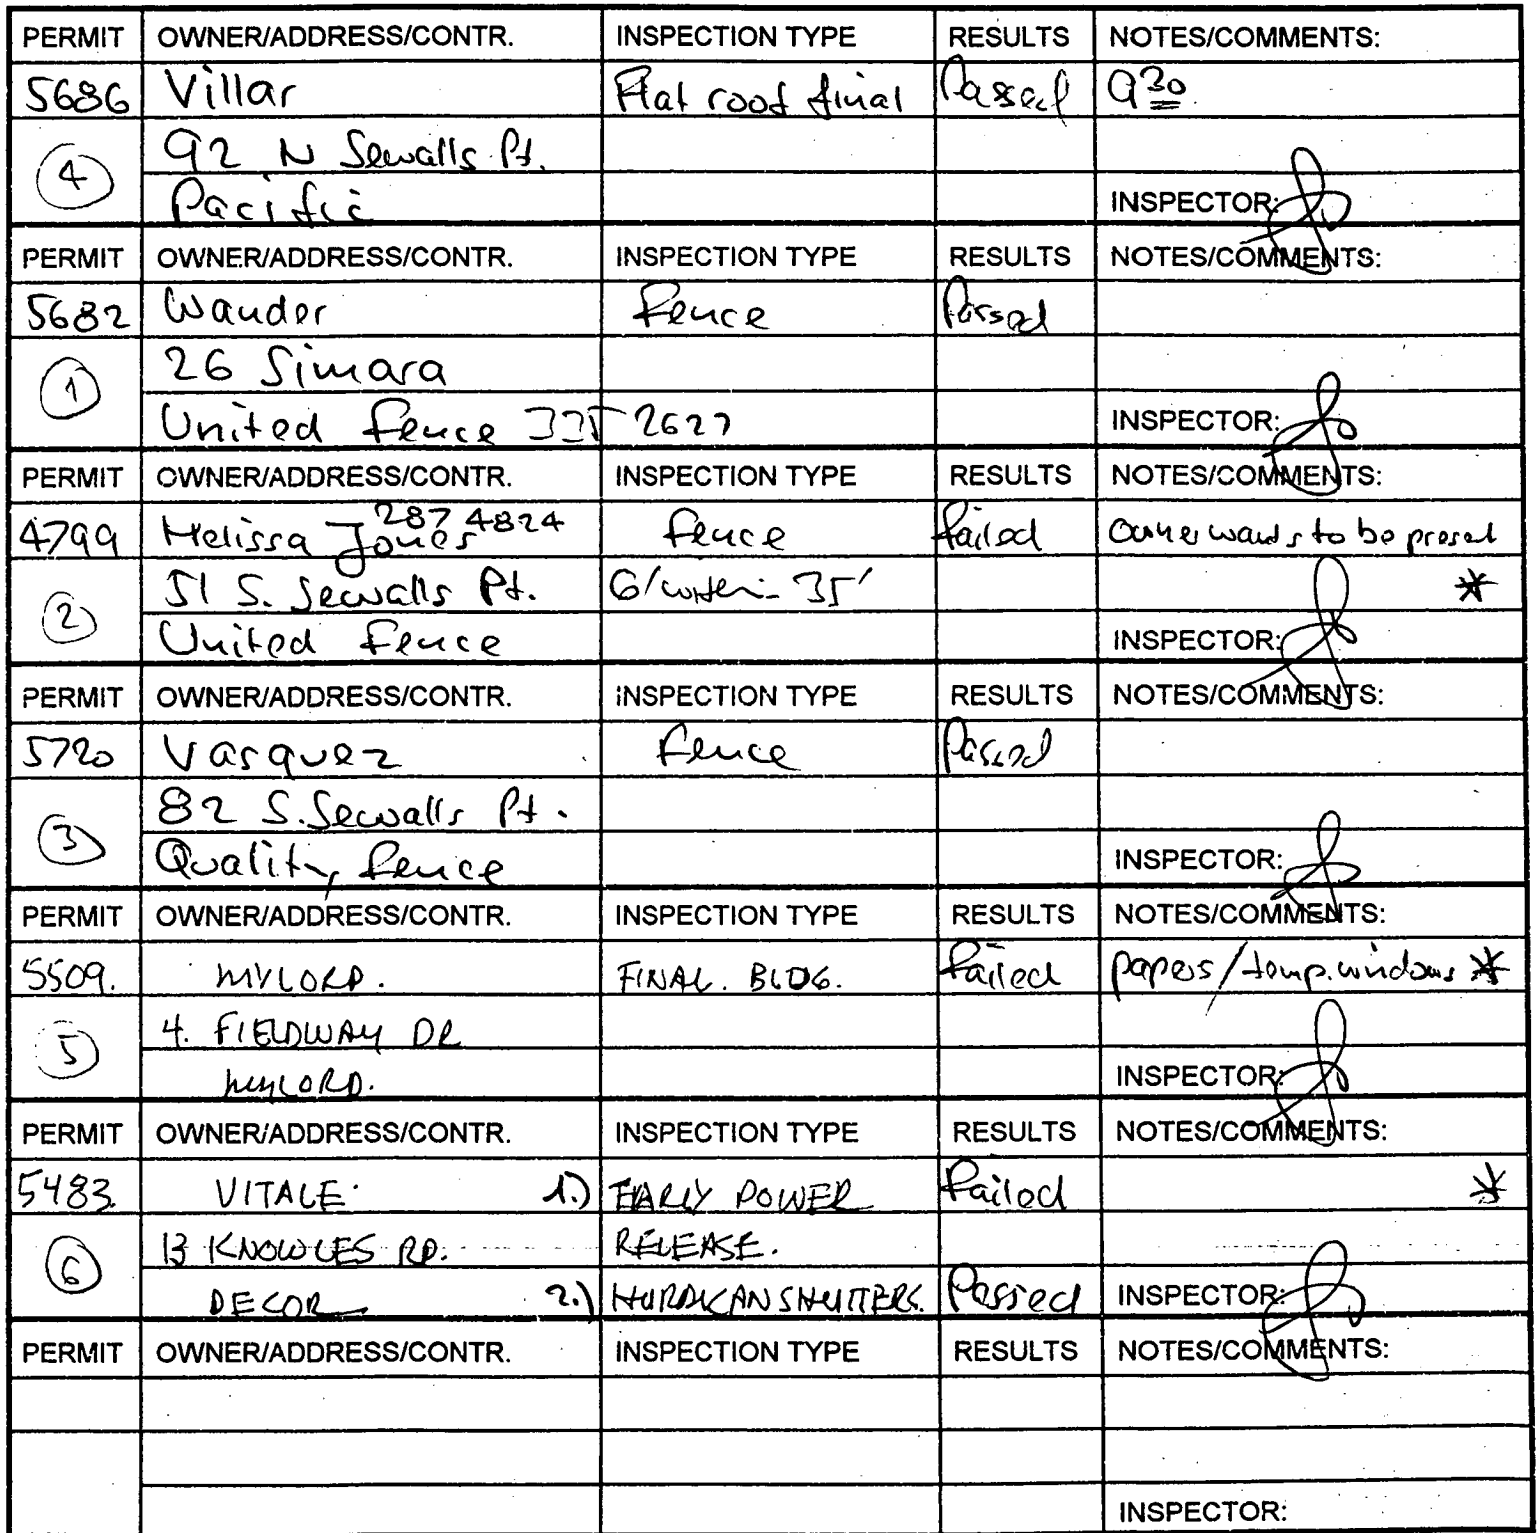 PERMIT OWNER/ADDRESS/CONTR. INSPECTION TYPE RESULTS NOTES/COMMENTS:
5686 Villar Flat roof final Passed 9³⁰
92 N Sewalls Pt.
4
Pacific INSPECTOR:
PERMIT OWNER/ADDRESS/CONTR. INSPECTION TYPE RESULTS NOTES/COMMENTS:
5682 Wander Fence Passed
26 Simara
1
United Fence 335 2627 INSPECTOR:
PERMIT OWNER/ADDRESS/CONTR. INSPECTION TYPE RESULTS NOTES/COMMENTS:
287 4824
4799 Melissa Jones Fence Failed Owner wants to be present
51 S. Sewalls Pt. 6' within 35' *
2
United Fence INSPECTOR:
PERMIT OWNER/ADDRESS/CONTR. INSPECTION TYPE RESULTS NOTES/COMMENTS:
5720 Varquez Fence Passed
82 S. Sewalls Pt.
3
Quality Fence INSPECTOR:
PERMIT OWNER/ADDRESS/CONTR. INSPECTION TYPE RESULTS NOTES/COMMENTS:
5509. MYLORD. FINAL. BLDG. Failed papers/temp.windows *
4. FIELDWAY DR
5
MYLORD. INSPECTOR:
PERMIT OWNER/ADDRESS/CONTR. INSPECTION TYPE RESULTS NOTES/COMMENTS:
5483. VITALE 1.) EARLY POWER Failed *
13 KNOWLES RD. RELEASE.
6
DECOR 2.) HURRICAN SHUTTERS. Passed INSPECTOR:
PERMIT OWNER/ADDRESS/CONTR. INSPECTION TYPE RESULTS NOTES/COMMENTS:
INSPECTOR: